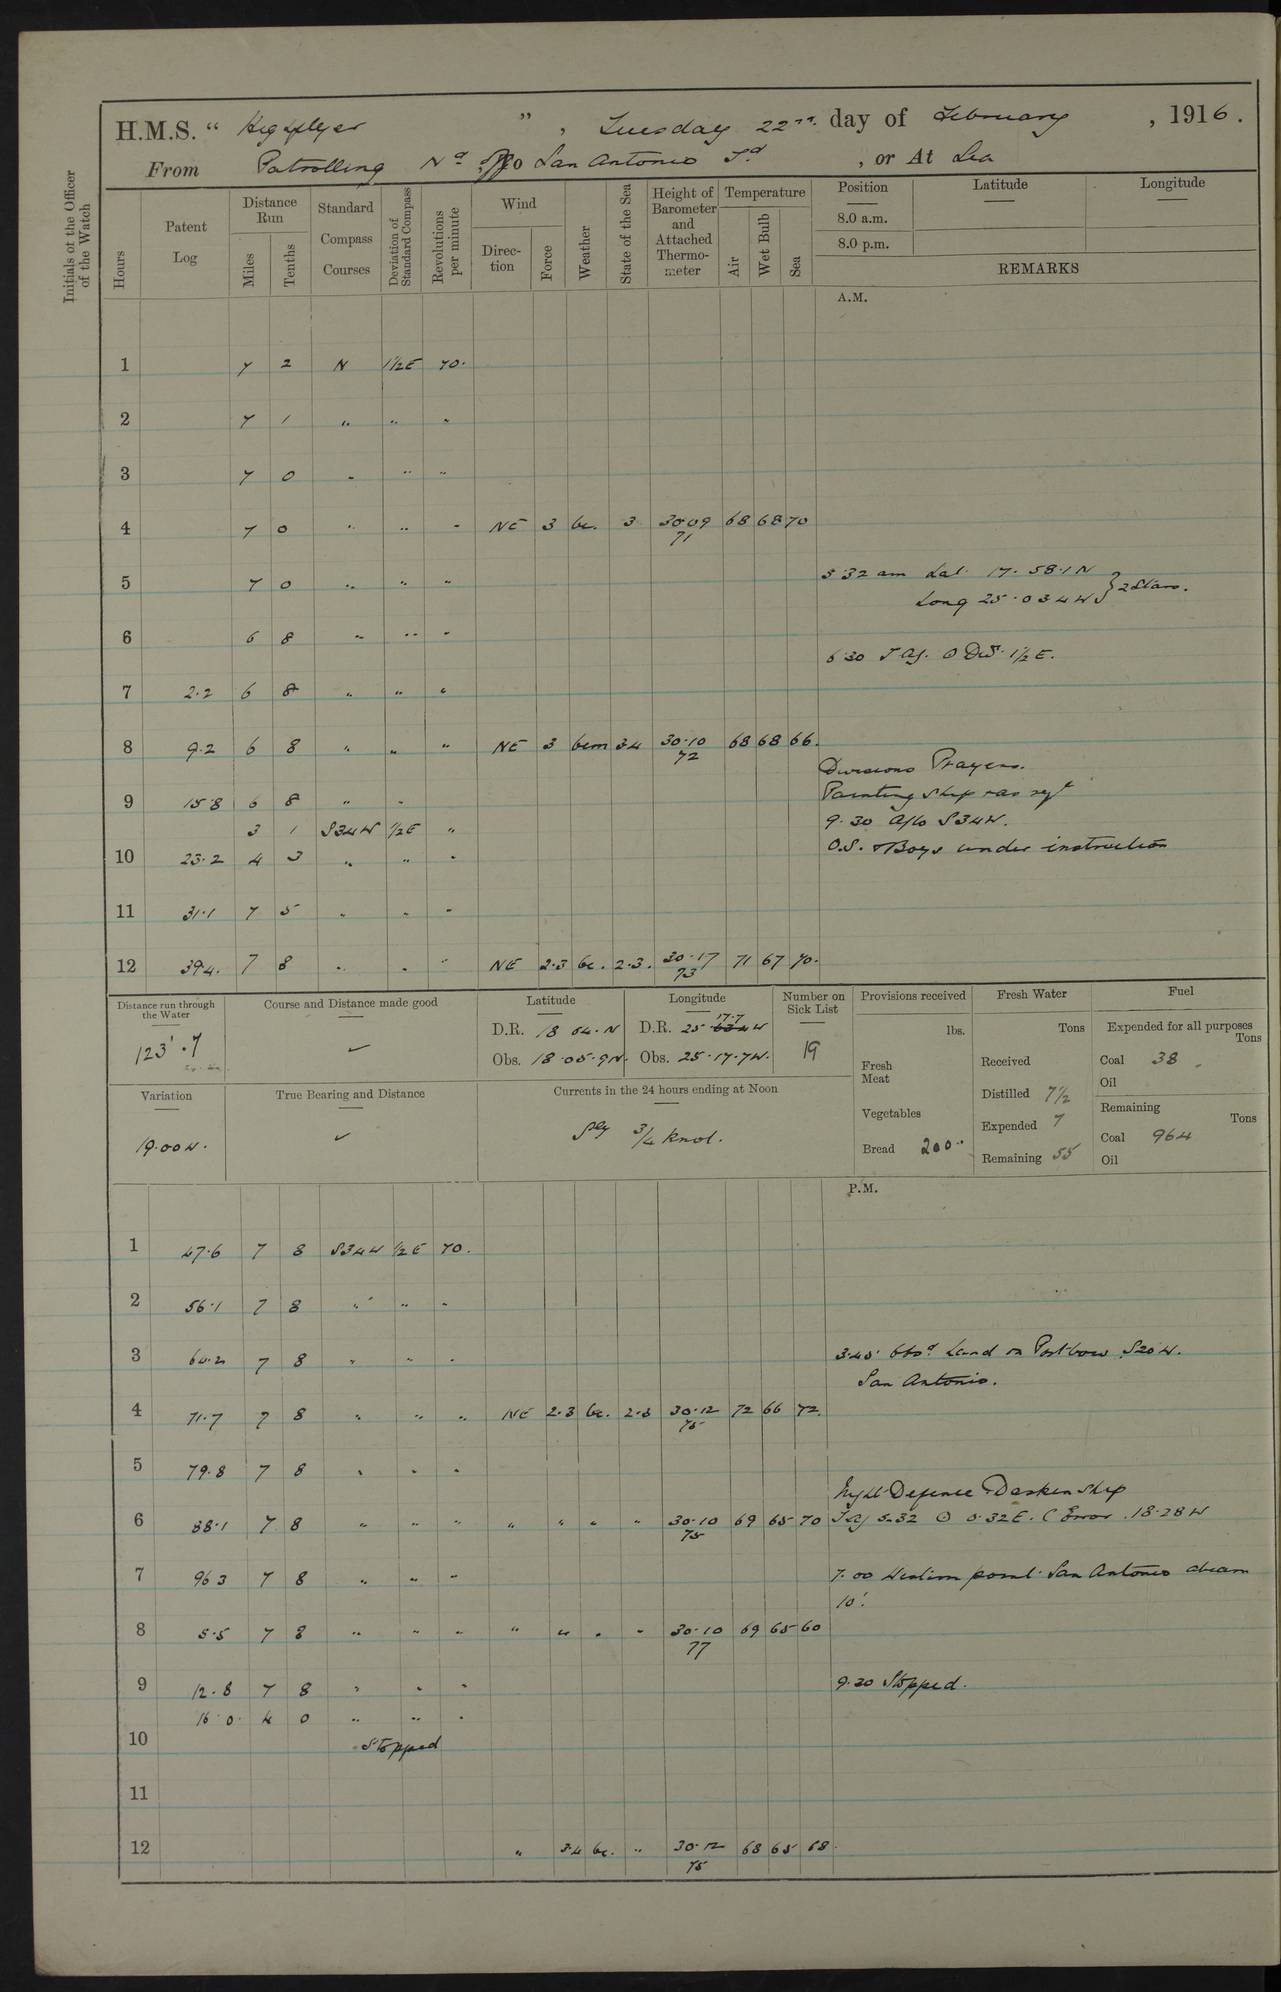 H.M.S. “ Highflyer ” , Tuesday 22nd. day of February , 1916 .
From Patrolling Nd San Antonio Id , or At Sea
Initials of the Officer of the Watch
Hours Patent Log Distance Run Miles Tenths Standard Compass Courses Deviation of Standard Compass Revolutions per minute Wind Direction Force Weather State of the Sea Height of Barometer and Attached Thermometer Temperature Air Wet Bulb Sea Position Latitude Longitude
8.0 a.m.
8.0 p.m.
REMARKS
A.M.
1 7 2 N 1½E 70.
2 7 1 " " "
3 7 0 " " "
4 7 0 " " " NE 3 bc. 3 30.09 71 68 68 70
5 7 0 " " " 5.32 am Lat. 17. 58.1 N
Long 25.03.4 W } 2 Stars.
6 6 8 " " "
6.30 T Az. ☉ Dev. 1½ E.
7 2.2 6 8 " " "
8 9.2 6 8 " " " NE 3 bcm 34 30.10 72 68 68 66.
Divisions Prayers.
9 15.8 6 8 " " Painting ship
3 1 S34W ½E " 9.30 A/co S34W.
10 23.2 4 3 " " " O.S. & Boys under instruction
11 31.1 7 5 " " "
12 39.4. 7 8 " " " NE 2.3 bc. 2.3. 30.17 73 71 67 70.
Distance run through the Water Course and Distance made good Latitude Longitude Number on Sick List Provisions received Fresh Water Fuel
123'.7 ✓ D.R. 18 04. N D.R. 25 17.7 W 19
Obs. 18.05.9N. Obs. 25.17.7W.
lbs. Tons Expended for all purposes Tons
Fresh Meat Received Coal 38
Oil
Variation True Bearing and Distance Currents in the 24 hours ending at Noon Distilled 7½ Remaining Tons
19.00W. ✓ Sly ¾ knot.
Vegetables Expended 7 Coal 964
Bread 200. Remaining 55 Oil
P.M.
1 47.6 7 8 S34W ½E 70.
2 56.1 7 8 " " "
3 64.2 7 8 " " " 3.45. Obsd Land on Port bow S20W.
San Antonio.
4 71.7 7 8 " " " NE 2.3 bc. 2.3 30.12 75 72 66 72.
5 79.8 7 8 " " "
Night Defence. Darken Ship
6 88.1 7 8 " " " " " " " 30.10 75 69 65 70 T Az 5.32 ☉ 0.32E. C Error. 18.28W
7 96 3 7 8 " " " 7.00 Western point San Antonio abeam
10'.
8 5.5 7 8 " " " " " " " 30.10 77 69 65 60
9 12.8 7 8 " " " 9.30 Stopped.
16.0. 4 0 " " "
10 Stopped
11
12 " 3.4 bc. " 30.12 75 68 65 68.